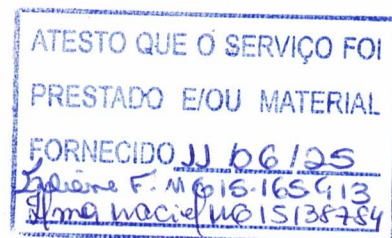 ATESTO QUE O SERVIÇO FOI
PRESTADO E/OU MATERIAL
FORNECIDO 11 06/25
F. MG15.165413
MG15138784